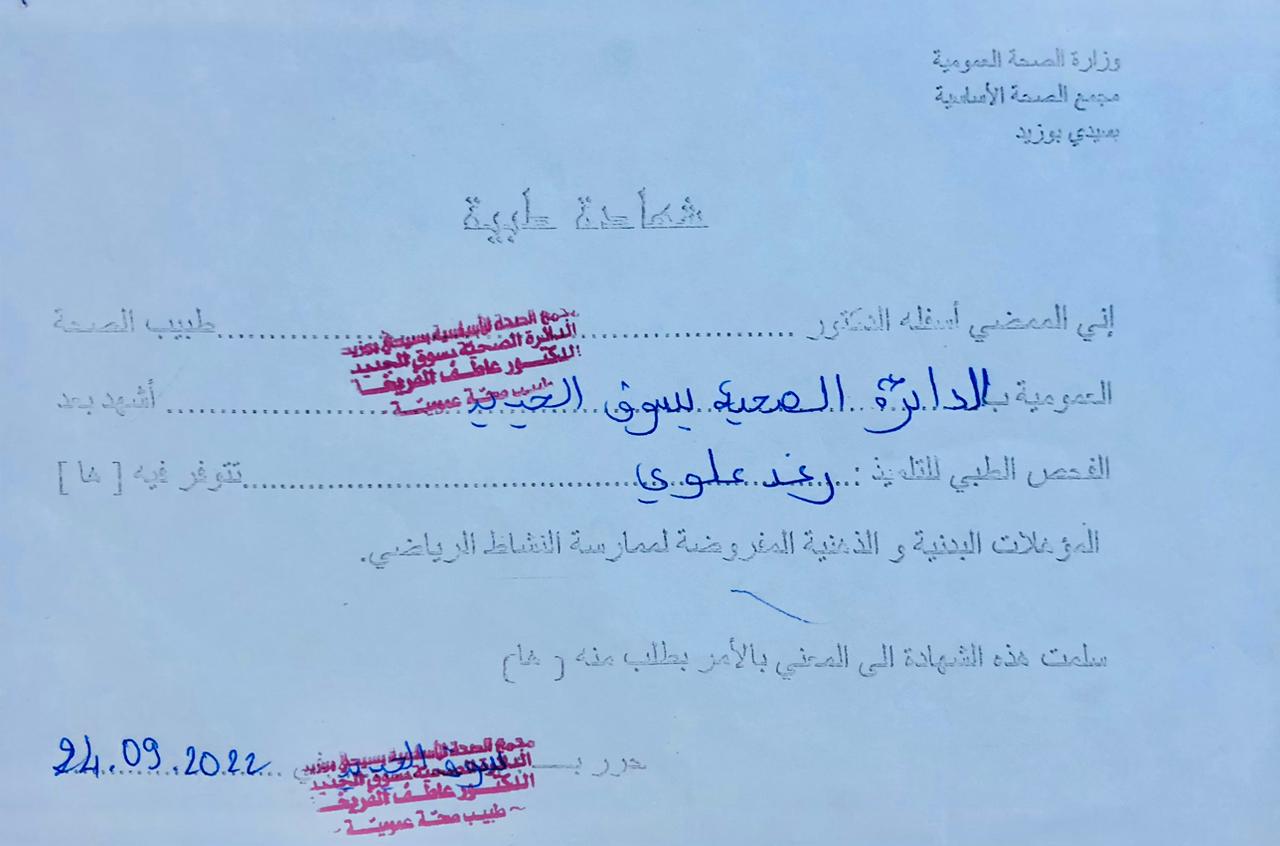 وزارة الصحة العمومية
مجمع الصحة الأساسية
بسيدي بوزيد
شهادة طبية
إني الممضي أسفله الدكتور ........................ طبيب الصحة
مجمع الصحة الأساسية بسيدي بوزيد
الدائرة الصحية بسوق الجديد
الدكتور عاطف
طبيب صحة عمومية
العمومية بالدائرة الصحية بسوق الجديد ........................ أشهد بعد
الفحص الطبي للتلميذ : رغد علوي ........................ تتوفر فيه [ ها ]
المؤهلات البدنية و الذهنية المفروضة لممارسة النشاط الرياضي.
سلمت هذه الشهادة الى المعني بالأمر بطلب منه [ ها]
حرر بـ سوق الجديد في 24.09.2022
مجمع الصحة الأساسية بسيدي بوزيد
الدائرة الصحية بسوق الجديد
الدكتور عاطف
طبيب صحة عمومية